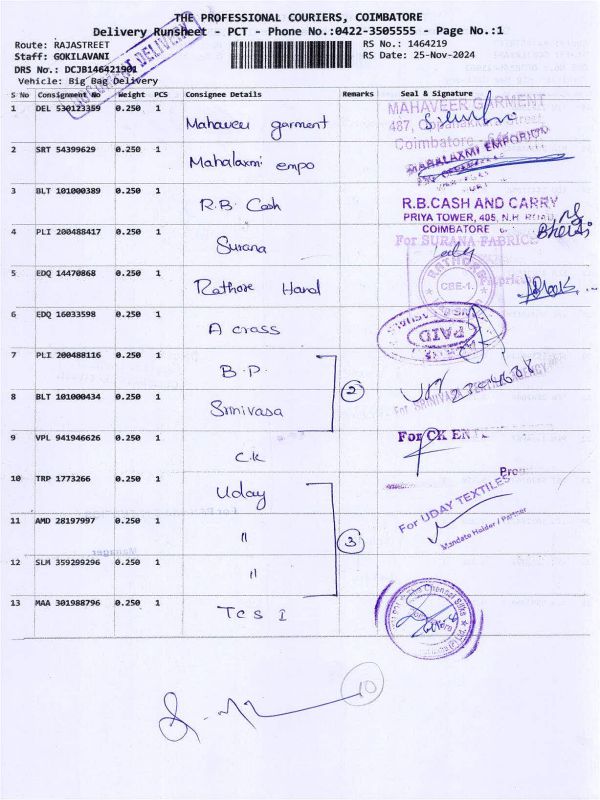 THE PROFESSIONAL COURIERS, COIMBATORE
Delivery Runsheet - PCT - Phone No.:0422-3505555 - Page No.:1
Route: RAJASTREET RS No.: 1464219
Staff: GOKILAVANI RS Date: 25-Nov-2024
DRS No.: DCJB146421901
Vehicle: Big Bag Delivery
DELIVERY
S No Consignment No Weight PCS Consignee Details Remarks Seal & Signature
1 DEL 530123359 0.250 1 Mahaveer garment
MAHAVEER GARMENT
487,
Coimbatore
2 SRT 54399629 0.250 1 Mahalaxmi empo
MAHALAXMI EMPORIUM
3 BLT 101000389 0.250 1 R.B. Cash
R.B.CASH AND CARRY
PRIYA TOWER, 405, N.H. ROAD
COIMBATORE
4 PLI 200488417 0.250 1 Surana
For SURANA FABRICS
5 EDQ 14470868 0.250 1 Rathore Hand
CBE-1.
6 EDQ 16033598 0.250 1 A crass
PAID
7 PLI 200488116 0.250 1 B.P.
2
8 BLT 101000434 0.250 1 Srinivasa
For SRINIVASA
9 VPL 941946626 0.250 1 C.K
For CK
10 TRP 1773266 0.250 1 Uday
For UDAY TEXTILES
Mandate Holder / Partner
11 AMD 28197997 0.250 1 "
3
12 SLM 359299296 0.250 1 "
13 MAA 301988796 0.250 1 TCS I
The Chennai Silks
10